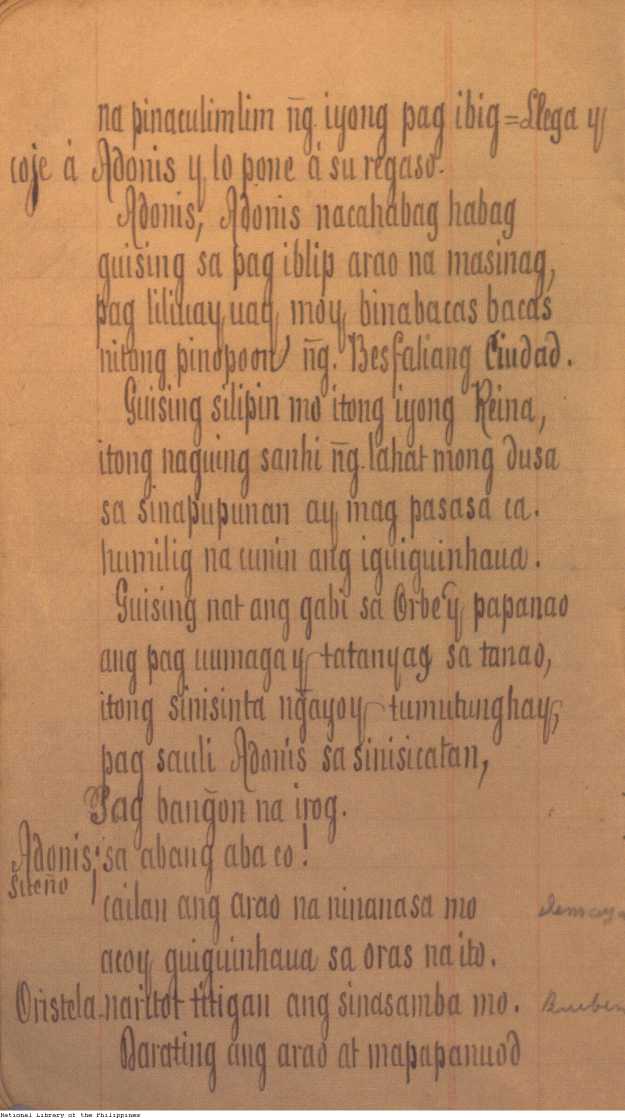 na pinaculimlim ñg. iyong pag ibig = Llega y
coje á Adonis y lo pone á su regaso.
Adonis, Adonis nacahabag habag
guising sa pag iblip arao na masinag,
pag liliuayuay moy binabacas bacas
nitong pinopoon ñg. Besfaliang Ciudad.
Guising silipin mo itong iyong Reina,
itong naguing sanhi ñg. lahat mong dusa
sa sinapupunan ay mag pasasa ca.
humilig na cunin ang iguiguinhaua.
Guising nat ang gabi sa Orbe'y papanao
ang pag uumaga y tatanyag sa tanao,
itong sinisinta ngayoy tumutunghay,
pag sauli Adonis sa sinisicatan,
Pag bang̃on na irog.
Adonis; sa abang aba co!
sueño
cailan ang arao na ninanasa mo
acoy guiguinhaua sa oras na ito.
Oristela. narito't titigan ang sinasamba mo. Rueben
Darating ang arao at mapapanuod
National Library of the Philippines